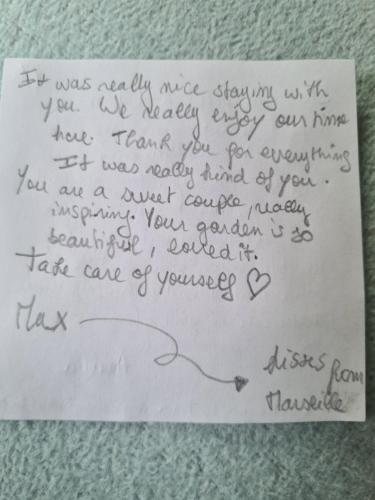 It was really nice staying with
you. We really enjoy our time
here. Thank you for everything
It was really kind of you.
You are a sweet couple, really
inspiring. Your garden is so
beautiful, loved it.
Take care of yourself ♡
Max
kisses from
Marseille